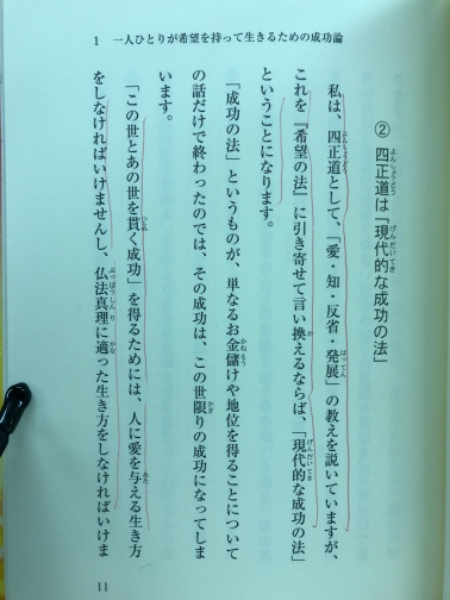 1 一人ひとりが希望を持って生きるための成功論
② 四正道は「現代的な成功の法」
私は、四正道として、「愛・知・反省・発展」の教えを説いていますが、
これを『希望の法』に引き寄せて言い換えるならば、「現代的な成功の法」
ということになります。
「成功の法」というものが、単なるお金儲けや地位を得ることについて
の話だけで終わったのでは、その成功は、この世限りの成功になってしま
います。
「この世とあの世を貫く成功」を得るためには、人に愛を与える生き方
をしなければいけませんし、仏法真理に適った生き方をしなければいけま
11